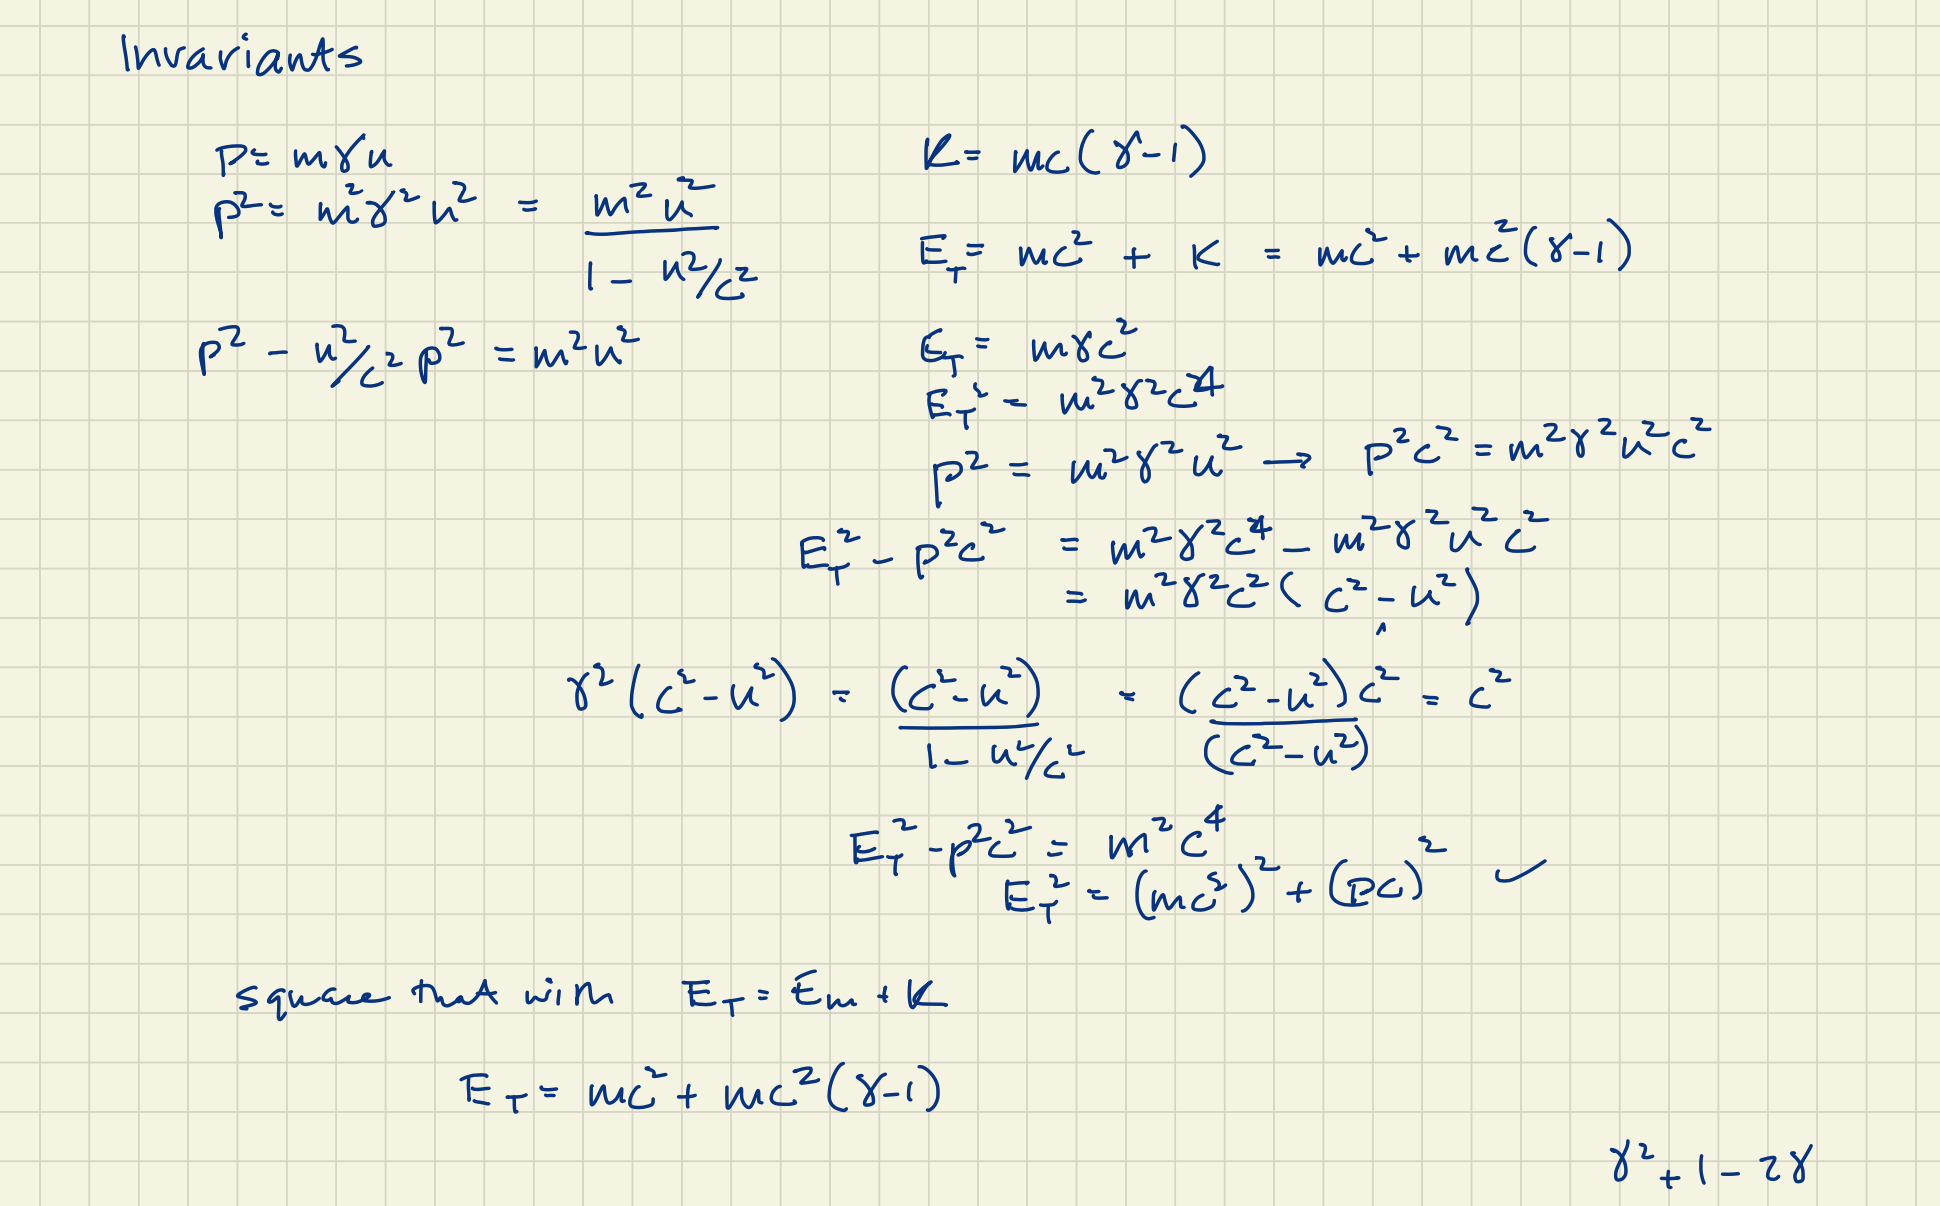 Invariants
p = mγu
p² = m²γ²u² = m²u² / (1 - u²/c²)
p² - u²/c² p² = m²u²
K = mc(γ-1)
E_T = mc² + K = mc² + mc²(γ-1)
E_T = mγc²
E_T² = m²γ²c⁴
p² = m²γ²u² → p²c² = m²γ²u²c²
E_T² - p²c² = m²γ²c⁴ - m²γ²u²c²
= m²γ²c²(c² - u²)
γ²(c² - u²) = (c² - u²) / (1 - u²/c²) = (c² - u²)c² / (c² - u²) = c²
E_T² - p²c² = m²c⁴
E_T² = (mc²)² + (pc)² ✓
square that with E_T = E_m + K
E_T = mc² + mc²(γ-1)
γ² + 1 - 2γ